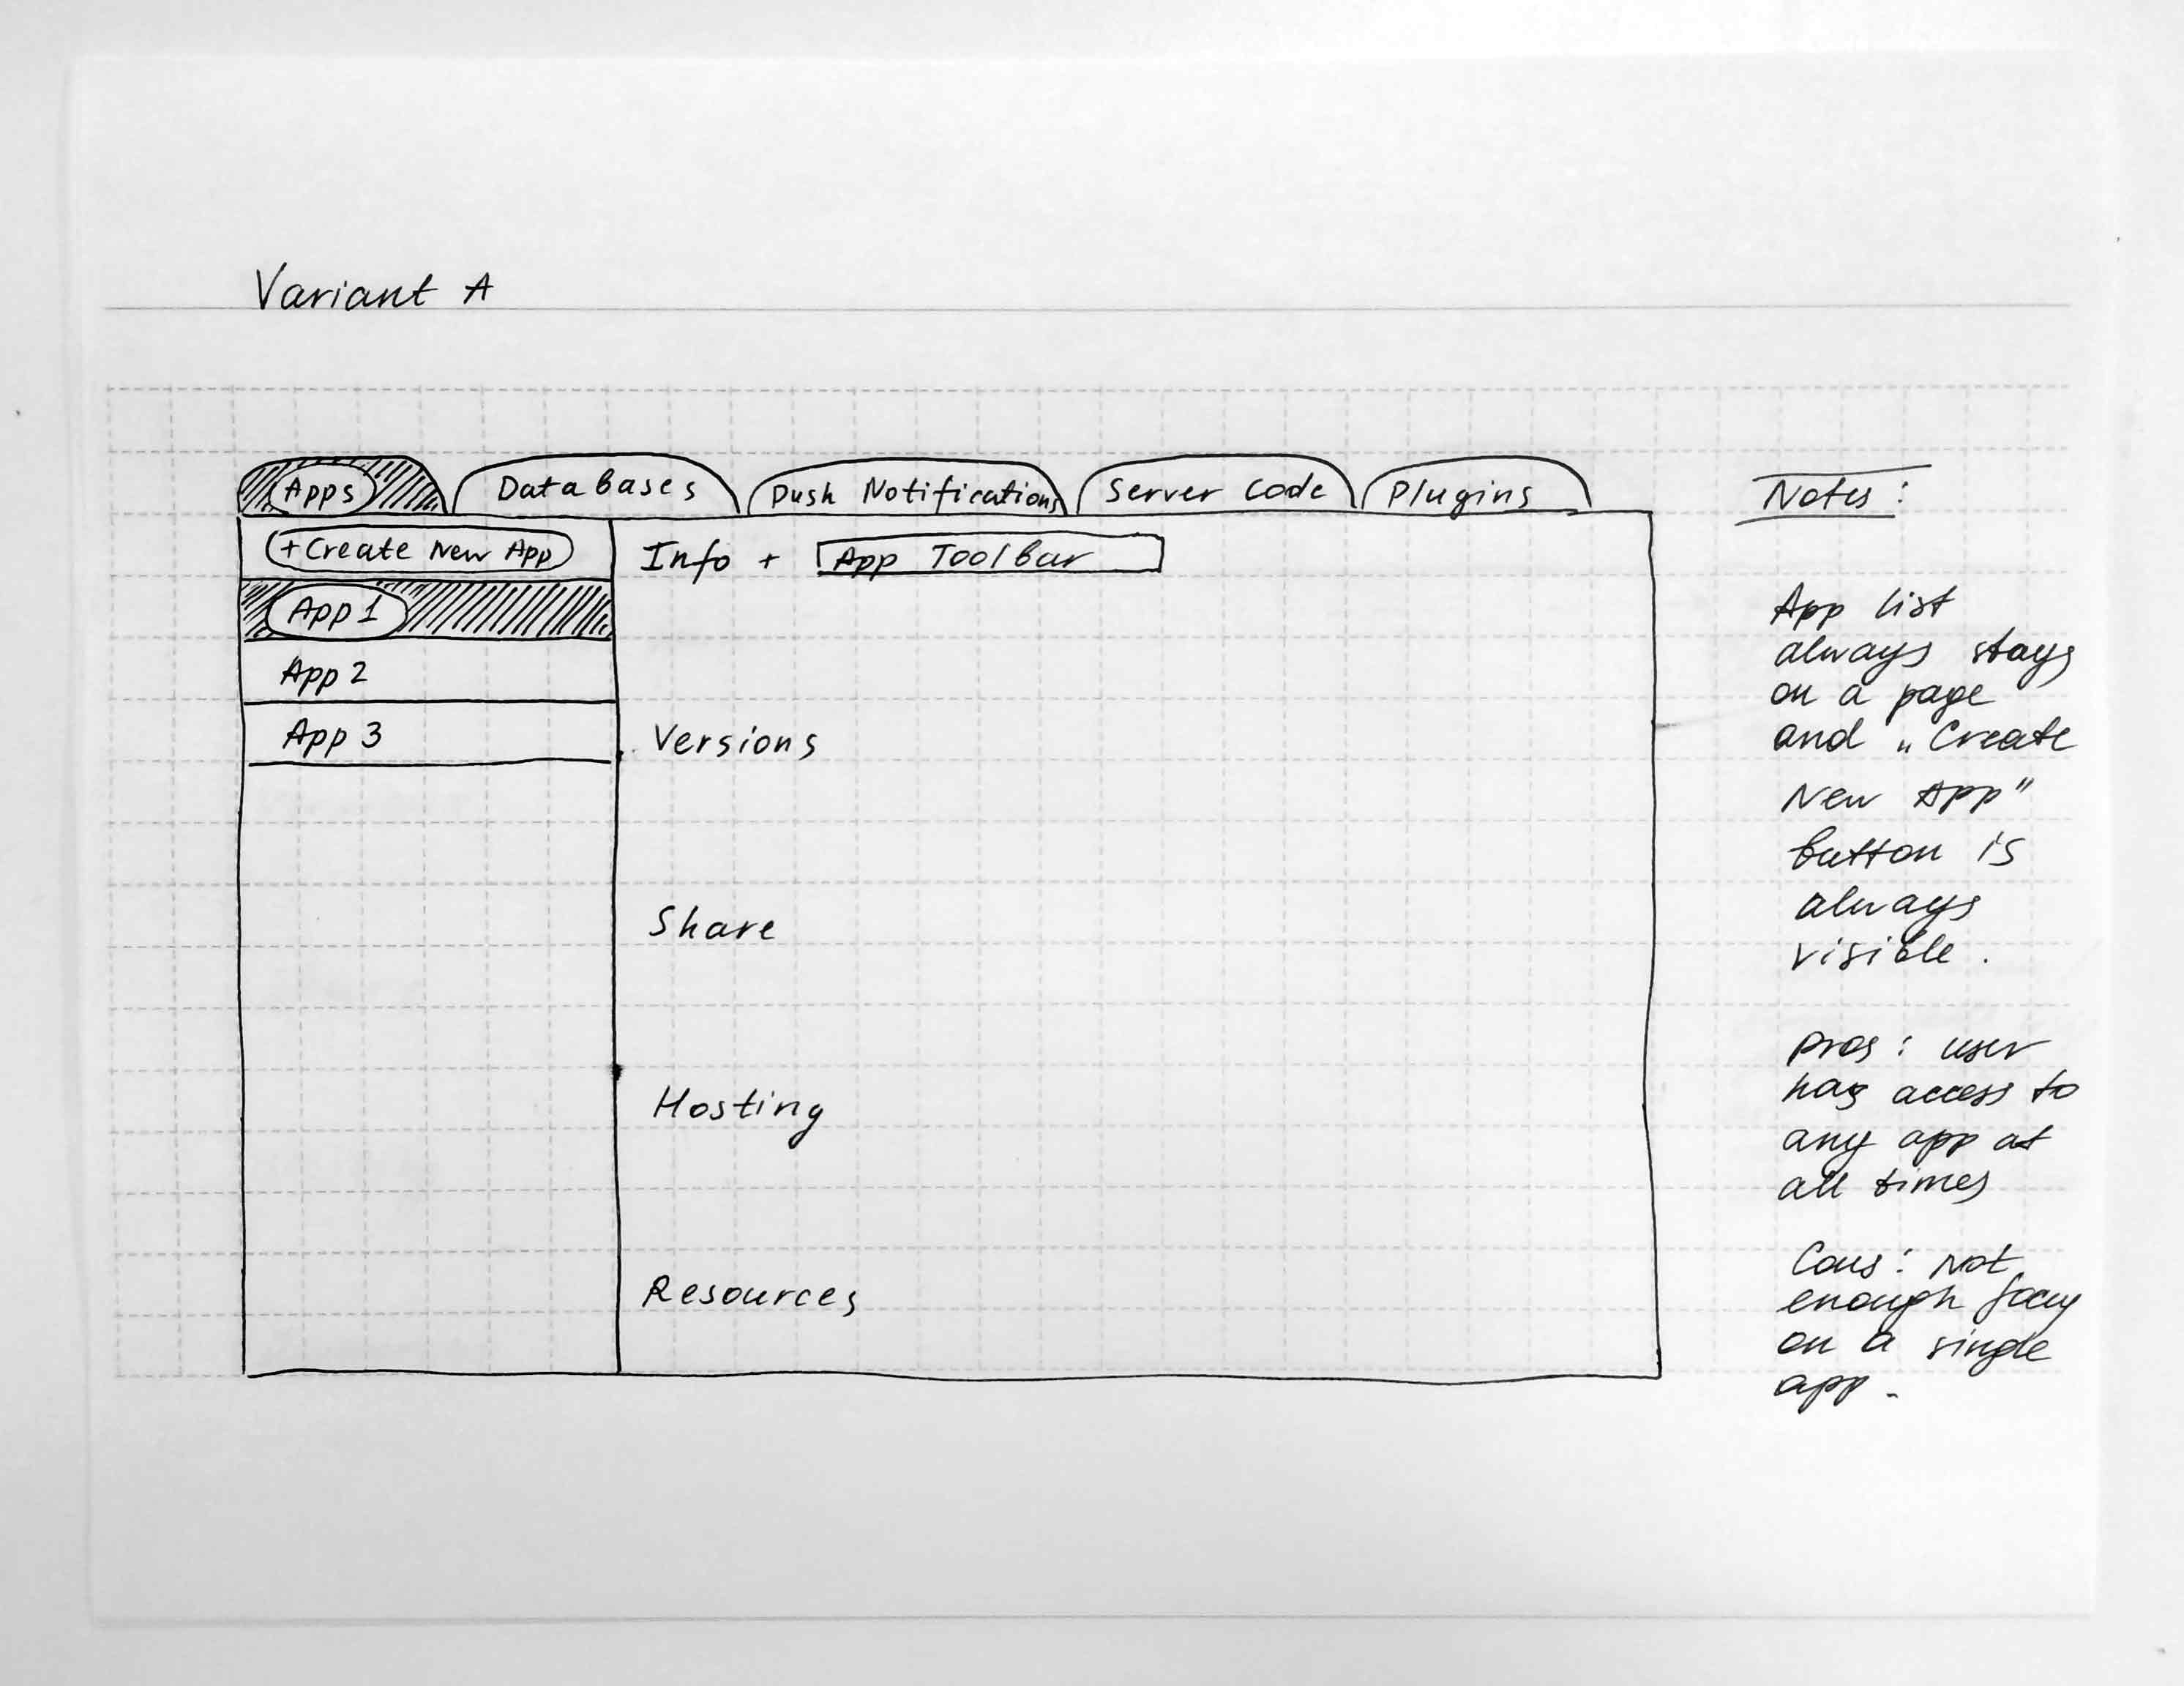 Variant A
Apps DataBases Push Notifications Server Code Plugins
+ Create New App
App 1
App 2
App 3
Info + App ToolBar
Versions
Share
Hosting
Resources
Notes:
App list
always stays
on a page
and „Create
New App"
button is
always
visible.
pros: user
has access to
any app at
all times
Cons: Not
enough focus
on a single
app.